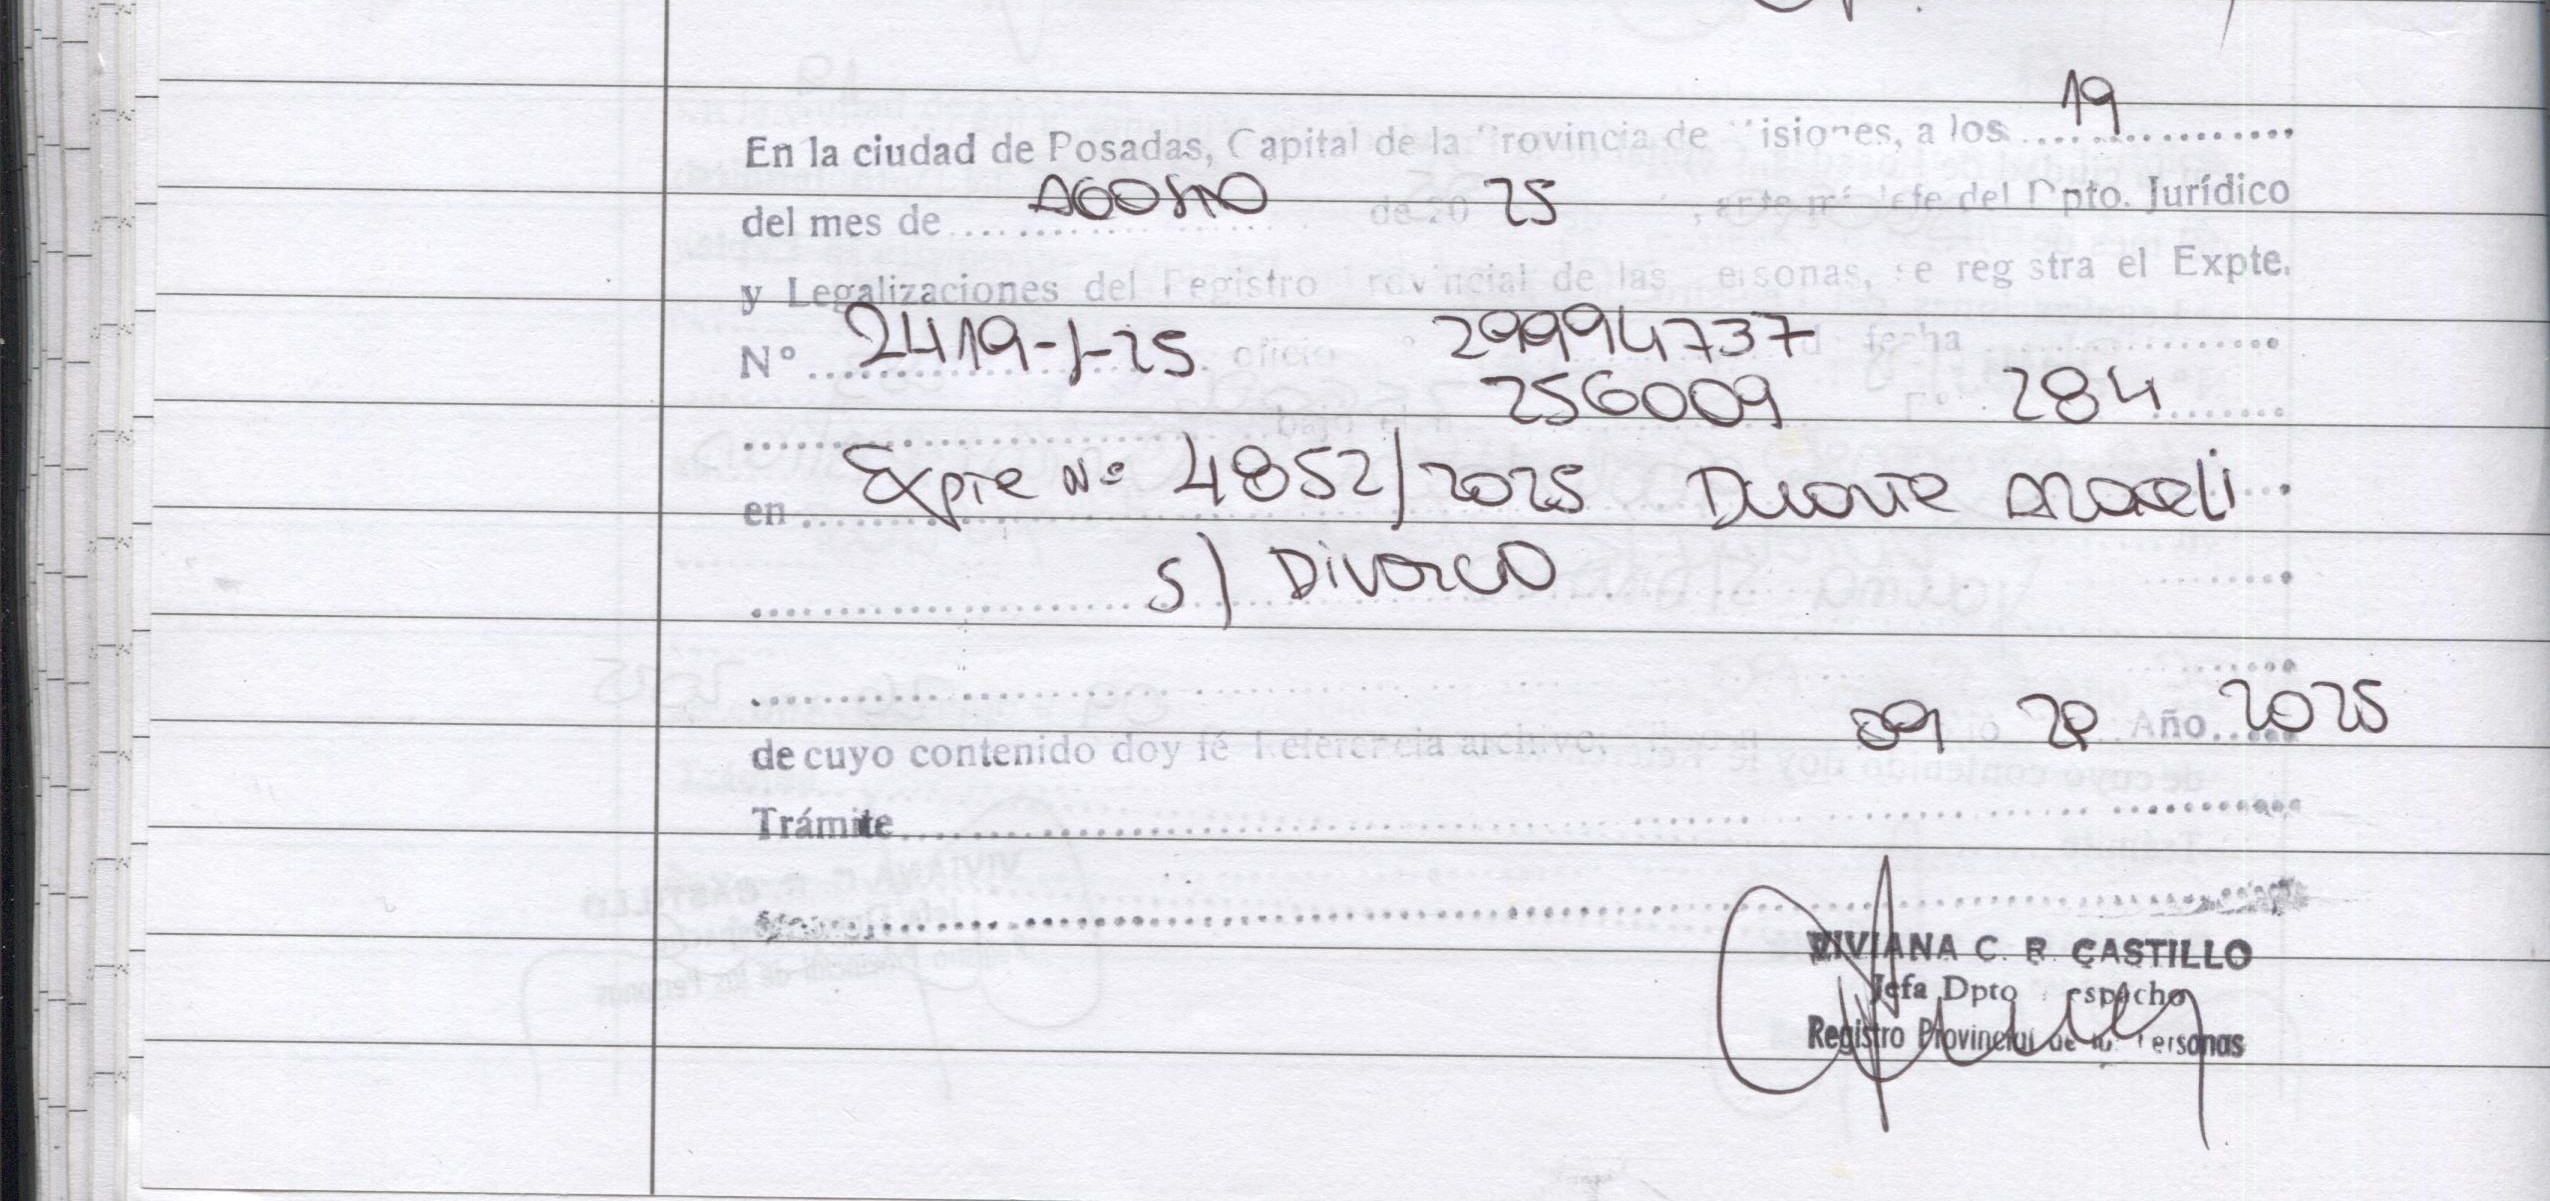 19
En la ciudad de Posadas, Capital de la Provincia de Misiones, a los ................
del mes de ........ AGOSTO de 20 25, ante mí Jefe del Dpto. Jurídico
y Legalizaciones del Registro Provincial de las Personas, se registra el Expte.
N° ........ 2419-J-25 oficio 29994737 fecha ................
........ bajo el n 256009 T° 284 ........
en ........ Expte N° 4852/2025 Duarte Araceli
........ S/ Divorcio ........
de cuyo contenido doy fé Referencia archivo, 09 Año 2025
Trámite ........
VIVIANA C. R. CASTILLO
Jefa Dpto Despacho
Registro Provincial de las Personas